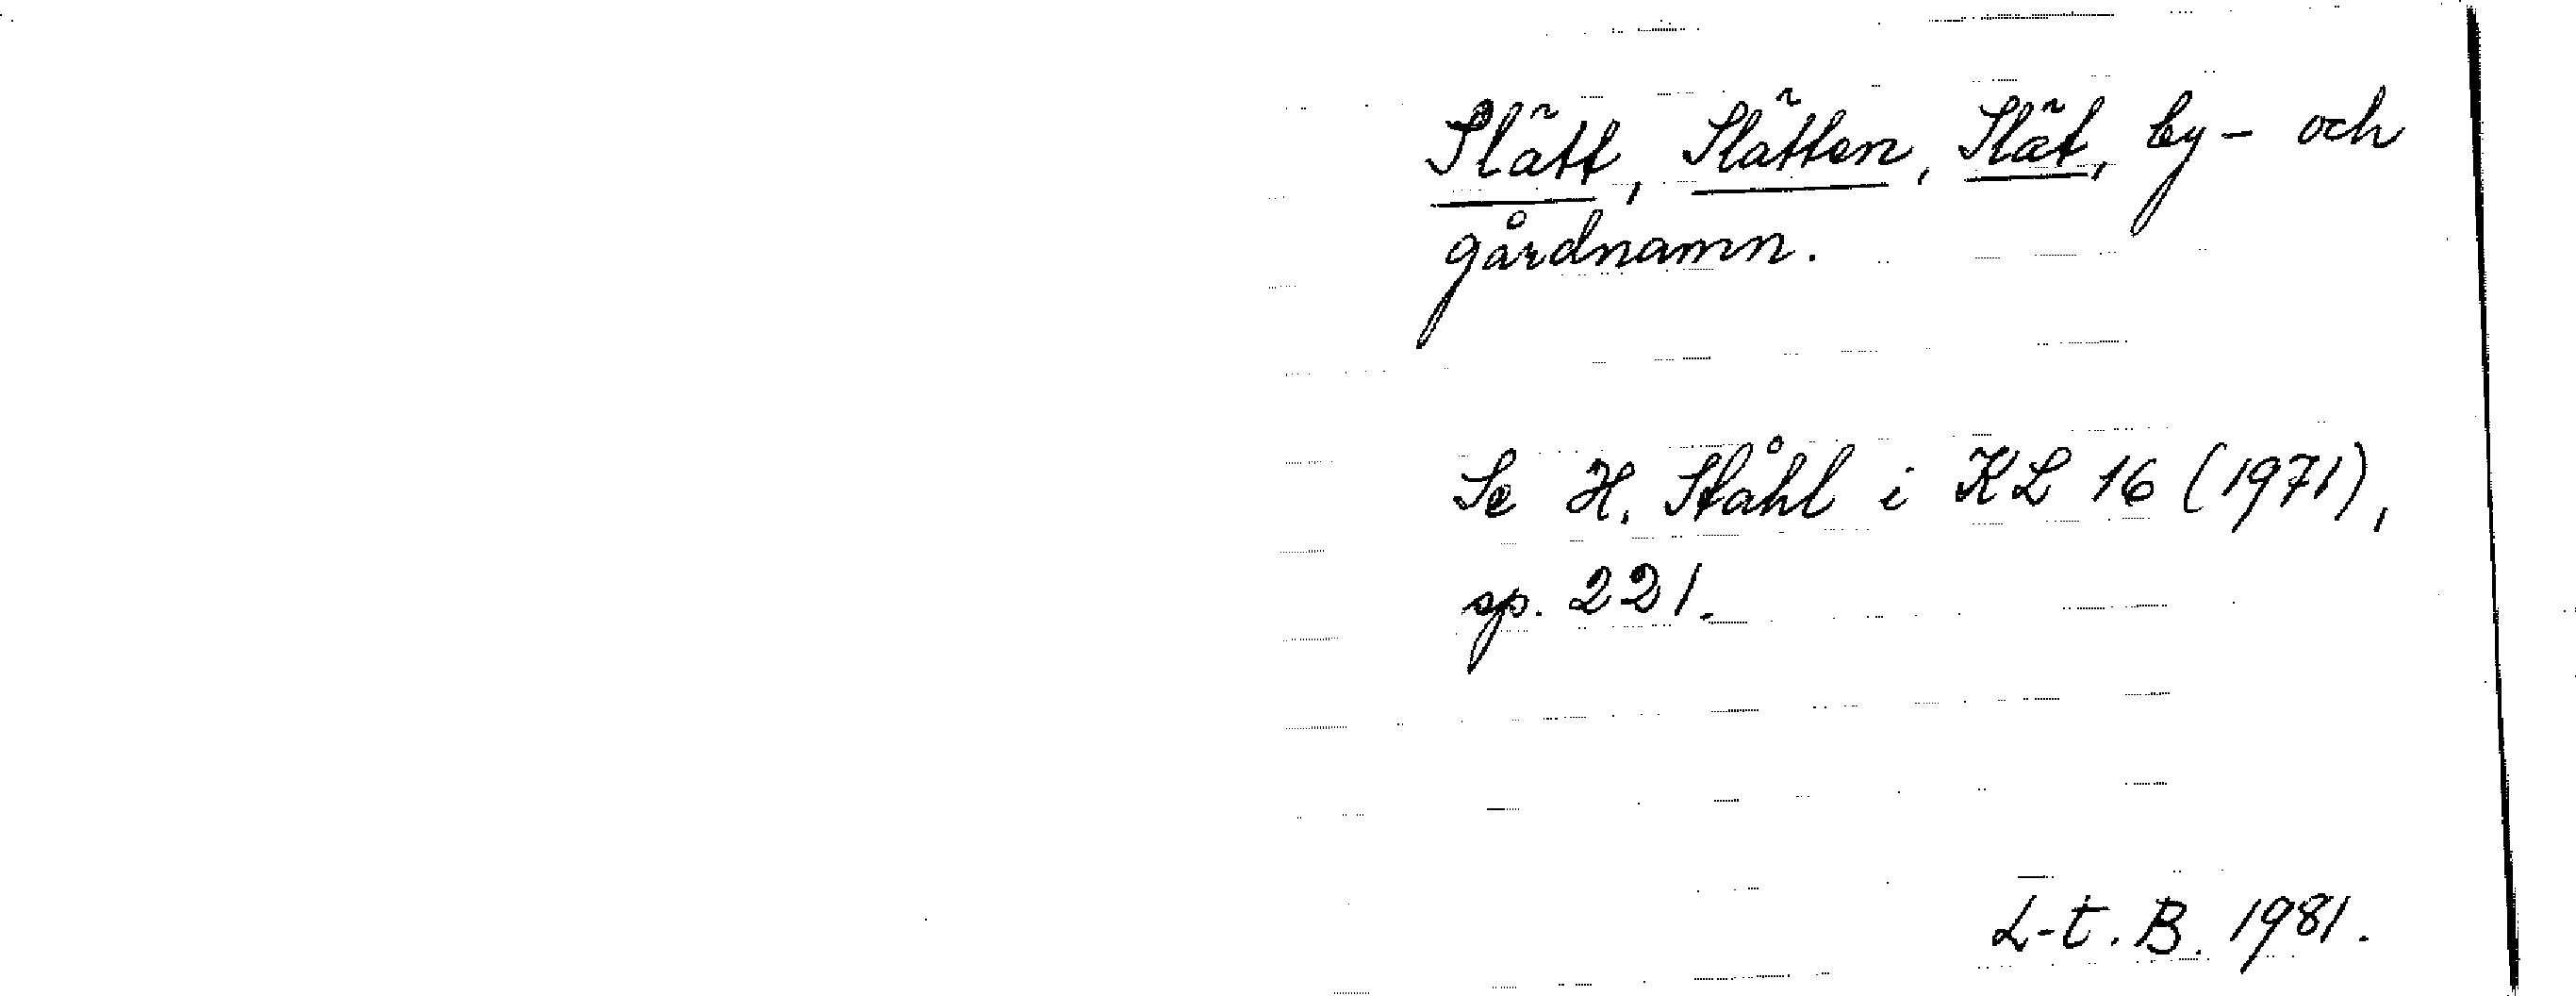 Slätt, Slätten, Slät, by- och
gårdnamn.
Se H. Ståhl i KL 16 (1971),
sp. 221.
L-t. B. 1981.